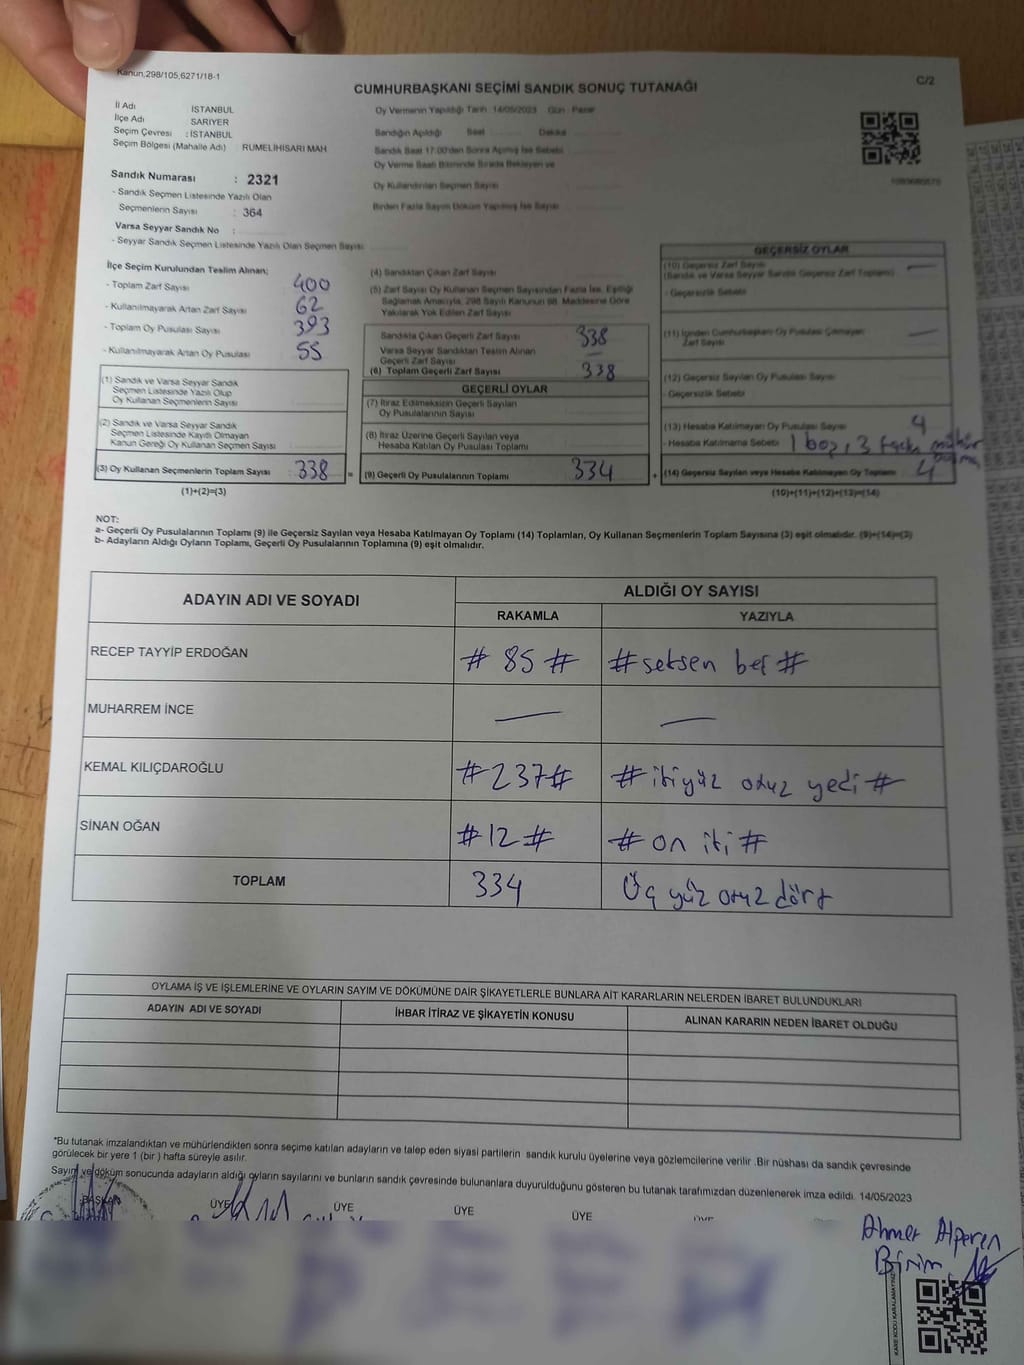 Kanun,298/105,6271/18-1
C/2
CUMHURBAŞKANI SEÇİMİ SANDIK SONUÇ TUTANAĞI
İl Adı İSTANBUL
İlçe Adı SARIYER
Seçim Çevresi : İSTANBUL
Seçim Bölgesi (Mahalle Adı) RUMELİHİSARI MAH
Oy Vermenin Yapıldığı Tarih 14/05/2023 Gün : Pazar
Sandığın Açıldığı Saat Dakika
Sandık Saat 17:00'den Sonra Açılmış İse Sebebi
Oy Verme Saati Bitiminde Sırada Bekleyen ve
Oy Kullandırılan Seçmen Sayısı
Birden Fazla Sayım Döküm Yapılmış İse Sayısı
Sandık Numarası : 2321
- Sandık Seçmen Listesinde Yazılı Olan
Seçmenlerin Sayısı : 364
Varsa Seyyar Sandık No :
- Seyyar Sandık Seçmen Listesinde Yazılı Olan Seçmen Sayısı
İlçe Seçim Kurulundan Teslim Alınan;
- Toplam Zarf Sayısı 400
- Kullanılmayarak Artan Zarf Sayısı 62
- Toplam Oy Pusulası Sayısı 393
- Kullanılmayarak Artan Oy Pusulası 55
(1) Sandık ve Varsa Seyyar Sandık
Seçmen Listesinde Yazılı Olup
Oy Kullanan Seçmenlerin Sayısı
(2) Sandık ve Varsa Seyyar Sandık
Seçmen Listesinde Kayıtlı Olmayan
Kanun Gereği Oy Kullanan Seçmen Sayısı
(3) Oy Kullanan Seçmenlerin Toplam Sayısı : 338 =
(1)+(2)=(3)
(4) Sandıktan Çıkan Zarf Sayısı
(5) Zarf Sayısı Oy Kullanan Seçmen Sayısından Fazla İse, Eşitliği
Sağlamak Amacıyla, 298 Sayılı Kanunun 98. Maddesine Göre
Yakılarak Yok Edilen Zarf Sayısı
Sandıkta Çıkan Geçerli Zarf Sayısı 338
Varsa Seyyar Sandıktan Teslim Alınan
Geçerli Zarf Sayısı —
(6) Toplam Geçerli Zarf Sayısı 338
GEÇERLİ OYLAR
(7) İtiraz Edilmeksizin Geçerli Sayılan
Oy Pusulalarının Sayısı
(8) İtiraz Üzerine Geçerli Sayılan veya
Hesaba Katılan Oy Pusulası Toplamı
(9) Geçerli Oy Pusulalarının Toplamı 334 +
GEÇERSİZ OYLAR
(10) Geçersiz Zarf Sayısı —
(Sandık ve Varsa Seyyar Sandık Geçersiz Zarf Toplamı)
- Geçersizlik Sebebi
(11) İçinden Cumhurbaşkanı Oy Pusulası Çıkmayan —
Zarf Sayısı
(12) Geçersiz Sayılan Oy Pusulası Sayısı
- Geçersizlik Sebebi
(13) Hesaba Katılmayan Oy Pusulası Sayısı 4
- Hesaba Katılmama Sebebi 1 boş, 3 fazla mühür
(14) Geçersiz Sayılan veya Hesaba Katılmayan Oy Toplamı 4
(10)+(11)+(12)+(13)=(14)
NOT:
a- Geçerli Oy Pusulalarının Toplamı (9) ile Geçersiz Sayılan veya Hesaba Katılmayan Oy Toplamı (14) Toplamları, Oy Kullanan Seçmenlerin Toplam Sayısına (3) eşit olmalıdır. (9)+(14)=(3)
b- Adayların Aldığı Oyların Toplamı, Geçerli Oy Pusulalarının Toplamına (9) eşit olmalıdır.
ADAYIN ADI VE SOYADI ALDIĞI OY SAYISI
RAKAMLA YAZIYLA
RECEP TAYYİP ERDOĞAN # 85 # # seksen beş #
MUHARREM İNCE — —
KEMAL KILIÇDAROĞLU # 237 # # ikiyüz otuz yedi #
SİNAN OĞAN # 12 # # on iki #
TOPLAM 334 Üç yüz otuz dört
OYLAMA İŞ VE İŞLEMLERİNE VE OYLARIN SAYIM VE DÖKÜMÜNE DAİR ŞİKAYETLERLE BUNLARA AİT KARARLARIN NELERDEN İBARET BULUNDUKLARI
ADAYIN ADI VE SOYADI İHBAR İTİRAZ VE ŞİKAYETİN KONUSU ALINAN KARARIN NEDEN İBARET OLDUĞU
*Bu tutanak imzalandıktan ve mühürlendikten sonra seçime katılan adayların ve talep eden siyasi partilerin sandık kurulu üyelerine veya gözlemcilerine verilir .Bir nüshası da sandık çevresinde
görülecek bir yere 1 (bir ) hafta süreyle asılır.
Sayım ve döküm sonucunda adayların aldığı oyların sayılarını ve bunların sandık çevresinde bulunanlara duyurulduğunu gösteren bu tutanak tarafımızdan düzenlenerek imza edildi. 14/05/2023
BAŞKAN ÜYE ÜYE ÜYE ÜYE ÜYE
Ahmet Alperen
Birim